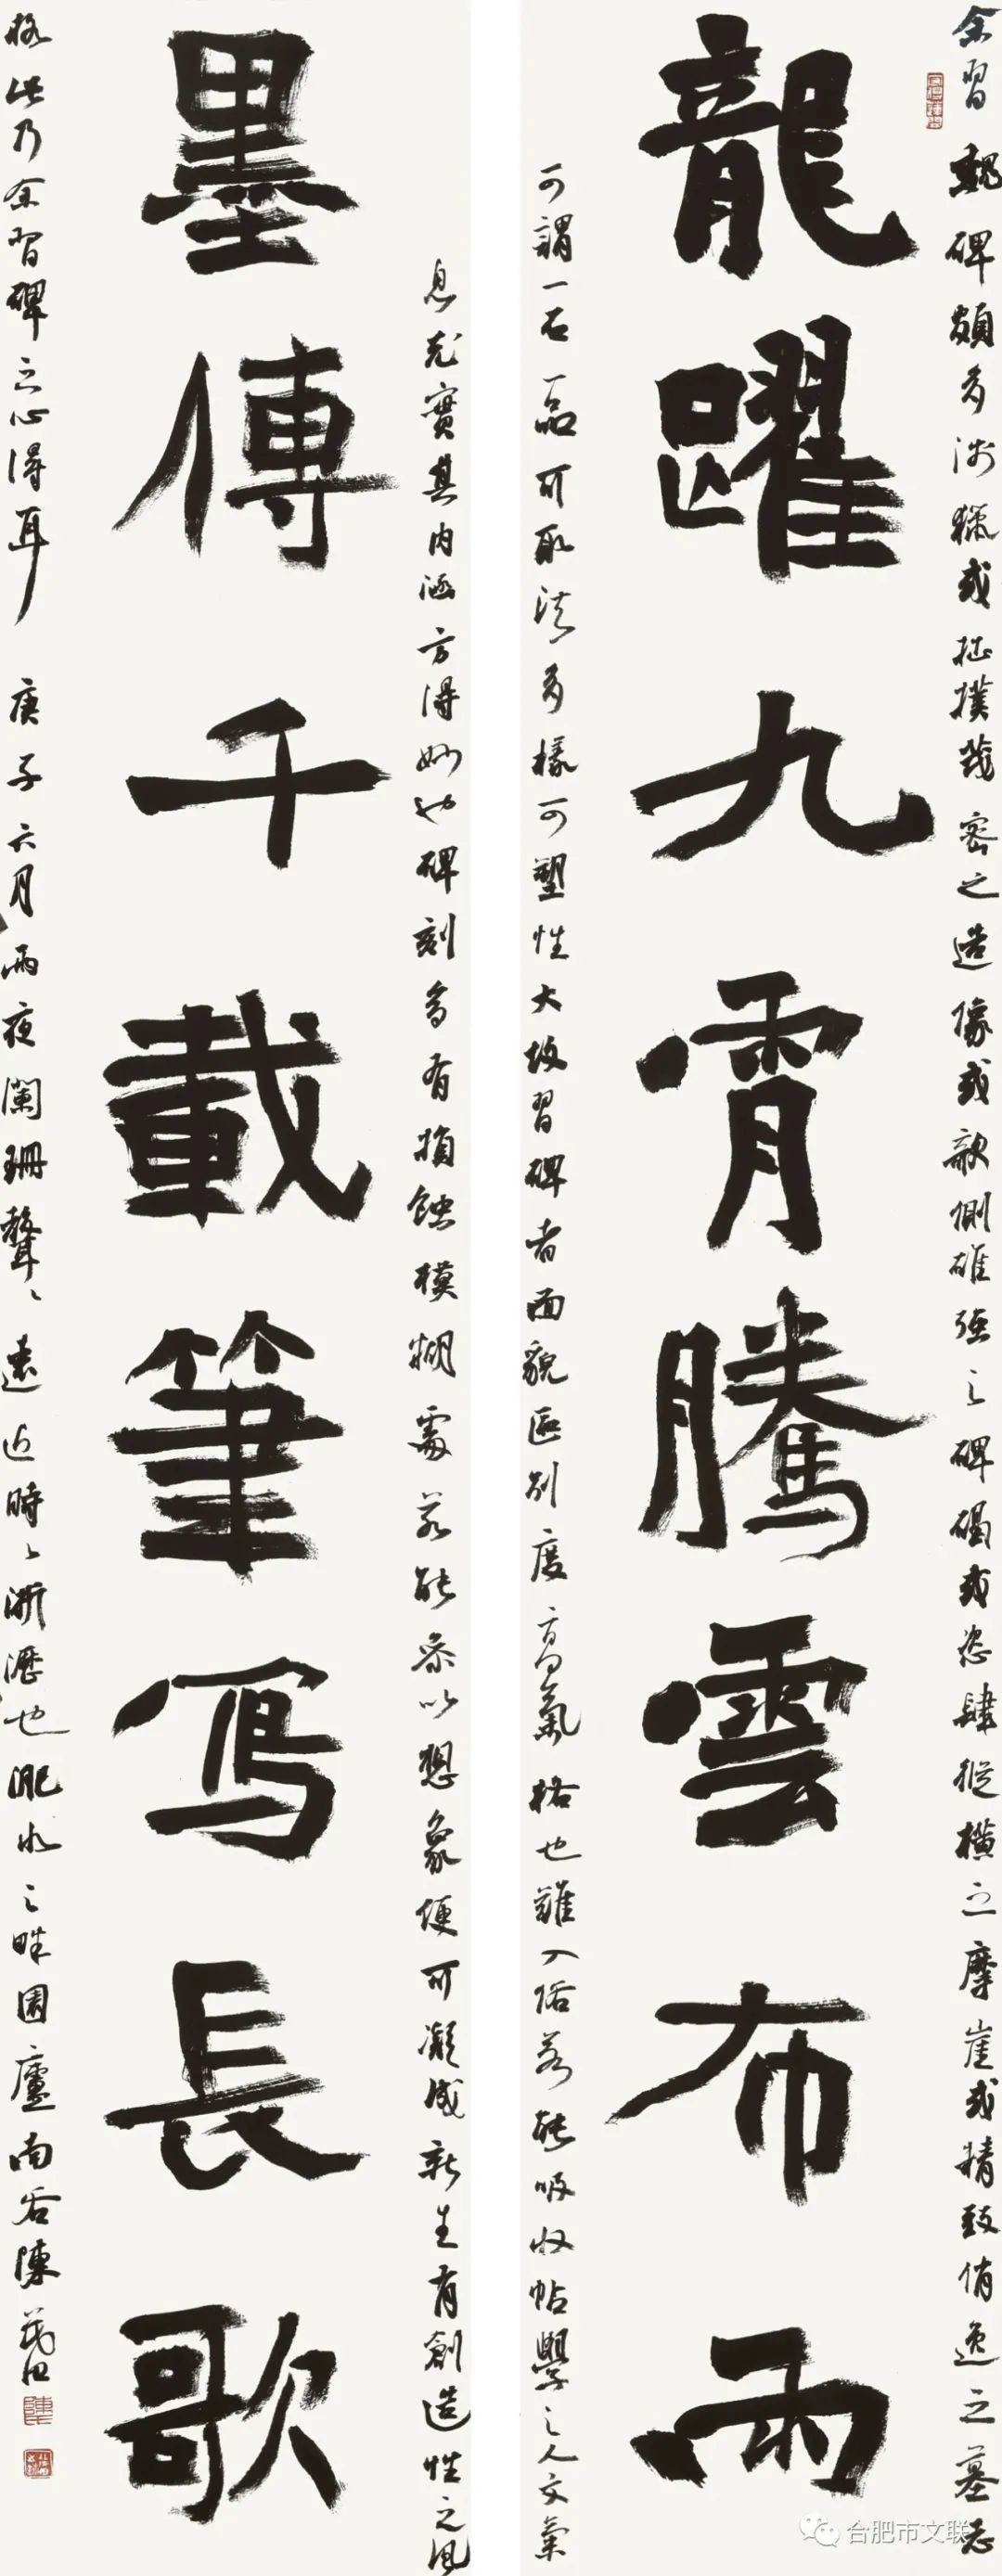 龍躍九霄騰雲布雨
墨傳千載筆寫長歌
余習魏碑頗多涉獵或拙撲茂密之造像或欹側雄强之碑碣或恣肆縱橫之摩崖或精致俏逸之墓志
可謂一石一品可取法多樣可塑性大故習碑者面貌區别度高氣格也難入俗若能吸收帖學之人文氣
息充實其内涵方得妙也碑刻多有損蝕模糊處若能參以想象便可凝成新生有創造性之風
格此乃余習碑之心得耳 庚子六月雨夜闌珊聲聲遠近時時淅瀝也淝水之畔園廬南谷陳茂田
合肥市文联